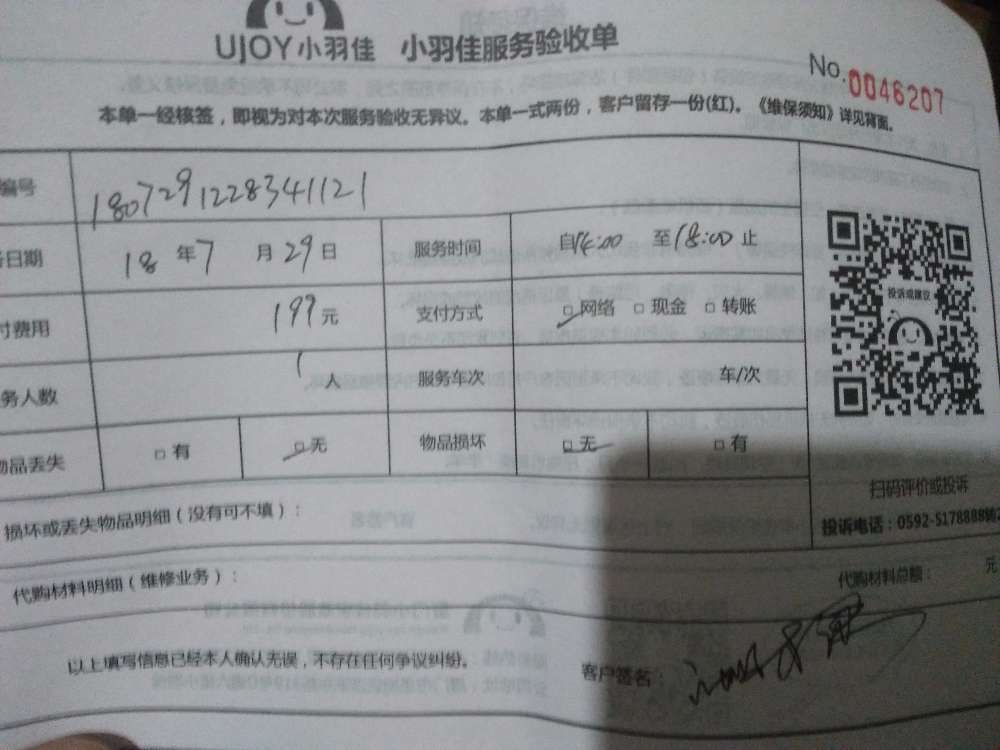 UJOY小羽佳 小羽佳服务验收单
No.0046207
本单一经核签，即视为对本次服务验收无异议。本单一式两份，客户留存一份(红)。《维保须知》详见背面。
编号 180729122834 1121
日期 18 年 7 月 29 日 服务时间 自14:00 至18:00 止
付费用 199元 支付方式 □网络 □现金 □转账
务人数 1人 服务车次 车/次
物品丢失 □有 □无 物品损坏 □无 □有
投诉或建议
扫码评价或投诉
投诉电话：0592-5178888转2
损坏或丢失物品明细（没有可不填）：
代购材料明细（维修业务）： 代购材料总额： 元
以上填写信息已经本人确认无误，不存在任何争议纠纷。 客户签名：